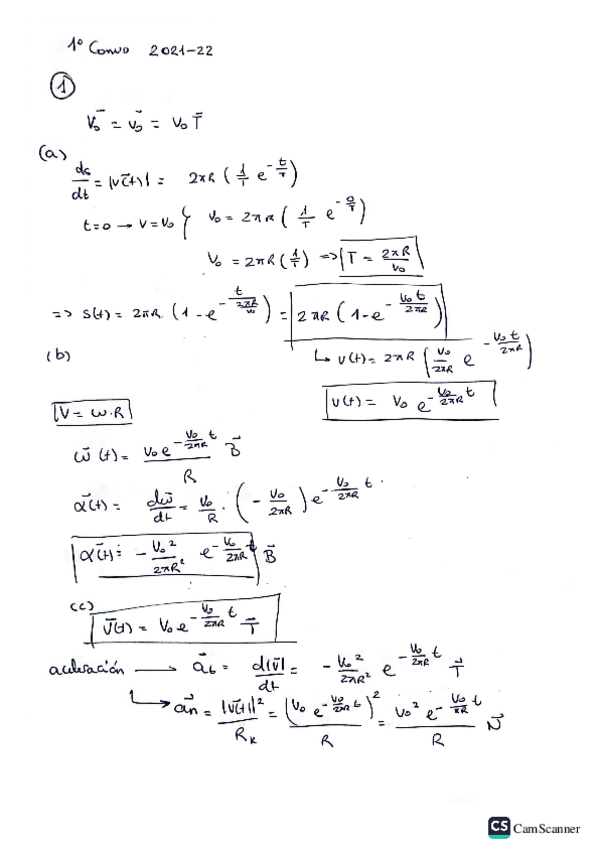 1º Convo 2021-22
①
V₀⃗ = v₀⃗ = v₀ T⃗
(a)
ds/dt = |v⃗(t)| = 2πR (1/T e^(-t/T))
t=0 → V=V₀ { V₀ = 2πR (1/T e^(-0/T))
V₀ = 2πR (1/T) => T = 2πR/V₀
=> S(t) = 2πR (1-e^(-t/(2πR/V₀))) = 2πR (1-e^(-V₀t/2πR))
(b)
↳ v(t) = 2πR (V₀/2πR e^(-V₀t/2πR))
v(t) = V₀ e^(-V₀/2πR t)
|V = ω·R|
ω⃗(t) = V₀e^(-V₀/2πR t)/R B⃗
α⃗(t) = dω⃗/dt = V₀/R · (-V₀/2πR) e^(-V₀/2πR t)
α⃗(t) = -V₀²/2πR² e^(-V₀/2πR t) B⃗
(c)
v⃗(t) = V₀e^(-V₀/2πR t) T⃗
aceleración → a⃗t = d|v⃗|/dt = -V₀²/2πR² e^(-V₀/2πR t) T⃗
↳ a⃗n = |v⃗(t)|²/Rκ = (V₀ e^(-V₀/2πR t))²/R = V₀² e^(-V₀/πR t)/R N⃗
CS CamScanner